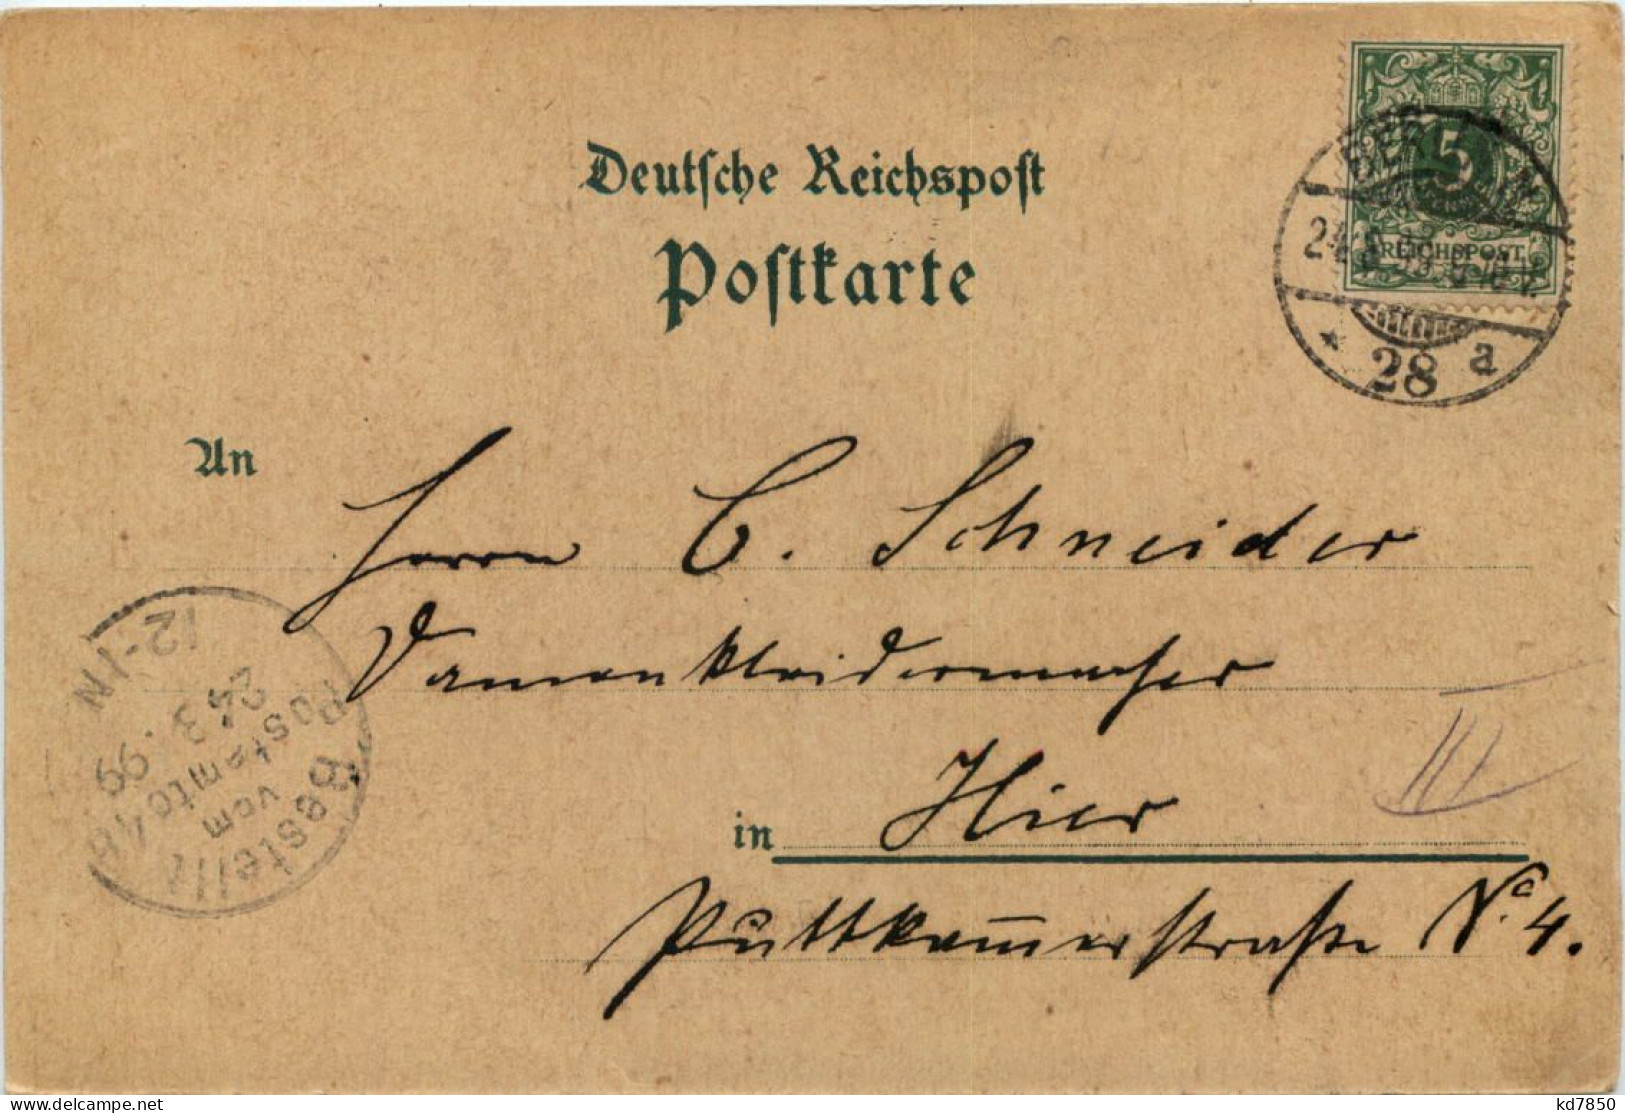 Deutsche Reichspost
Postkarte
5
REICHSPOST
BERLIN
28 a
An
Herrn C. Schneider
Damenkleidermacher
in Hier
Puttkamerstraße No 4.
III
Bestellt
vom
Postamte 48
24.3.99
12-1N
kd7850